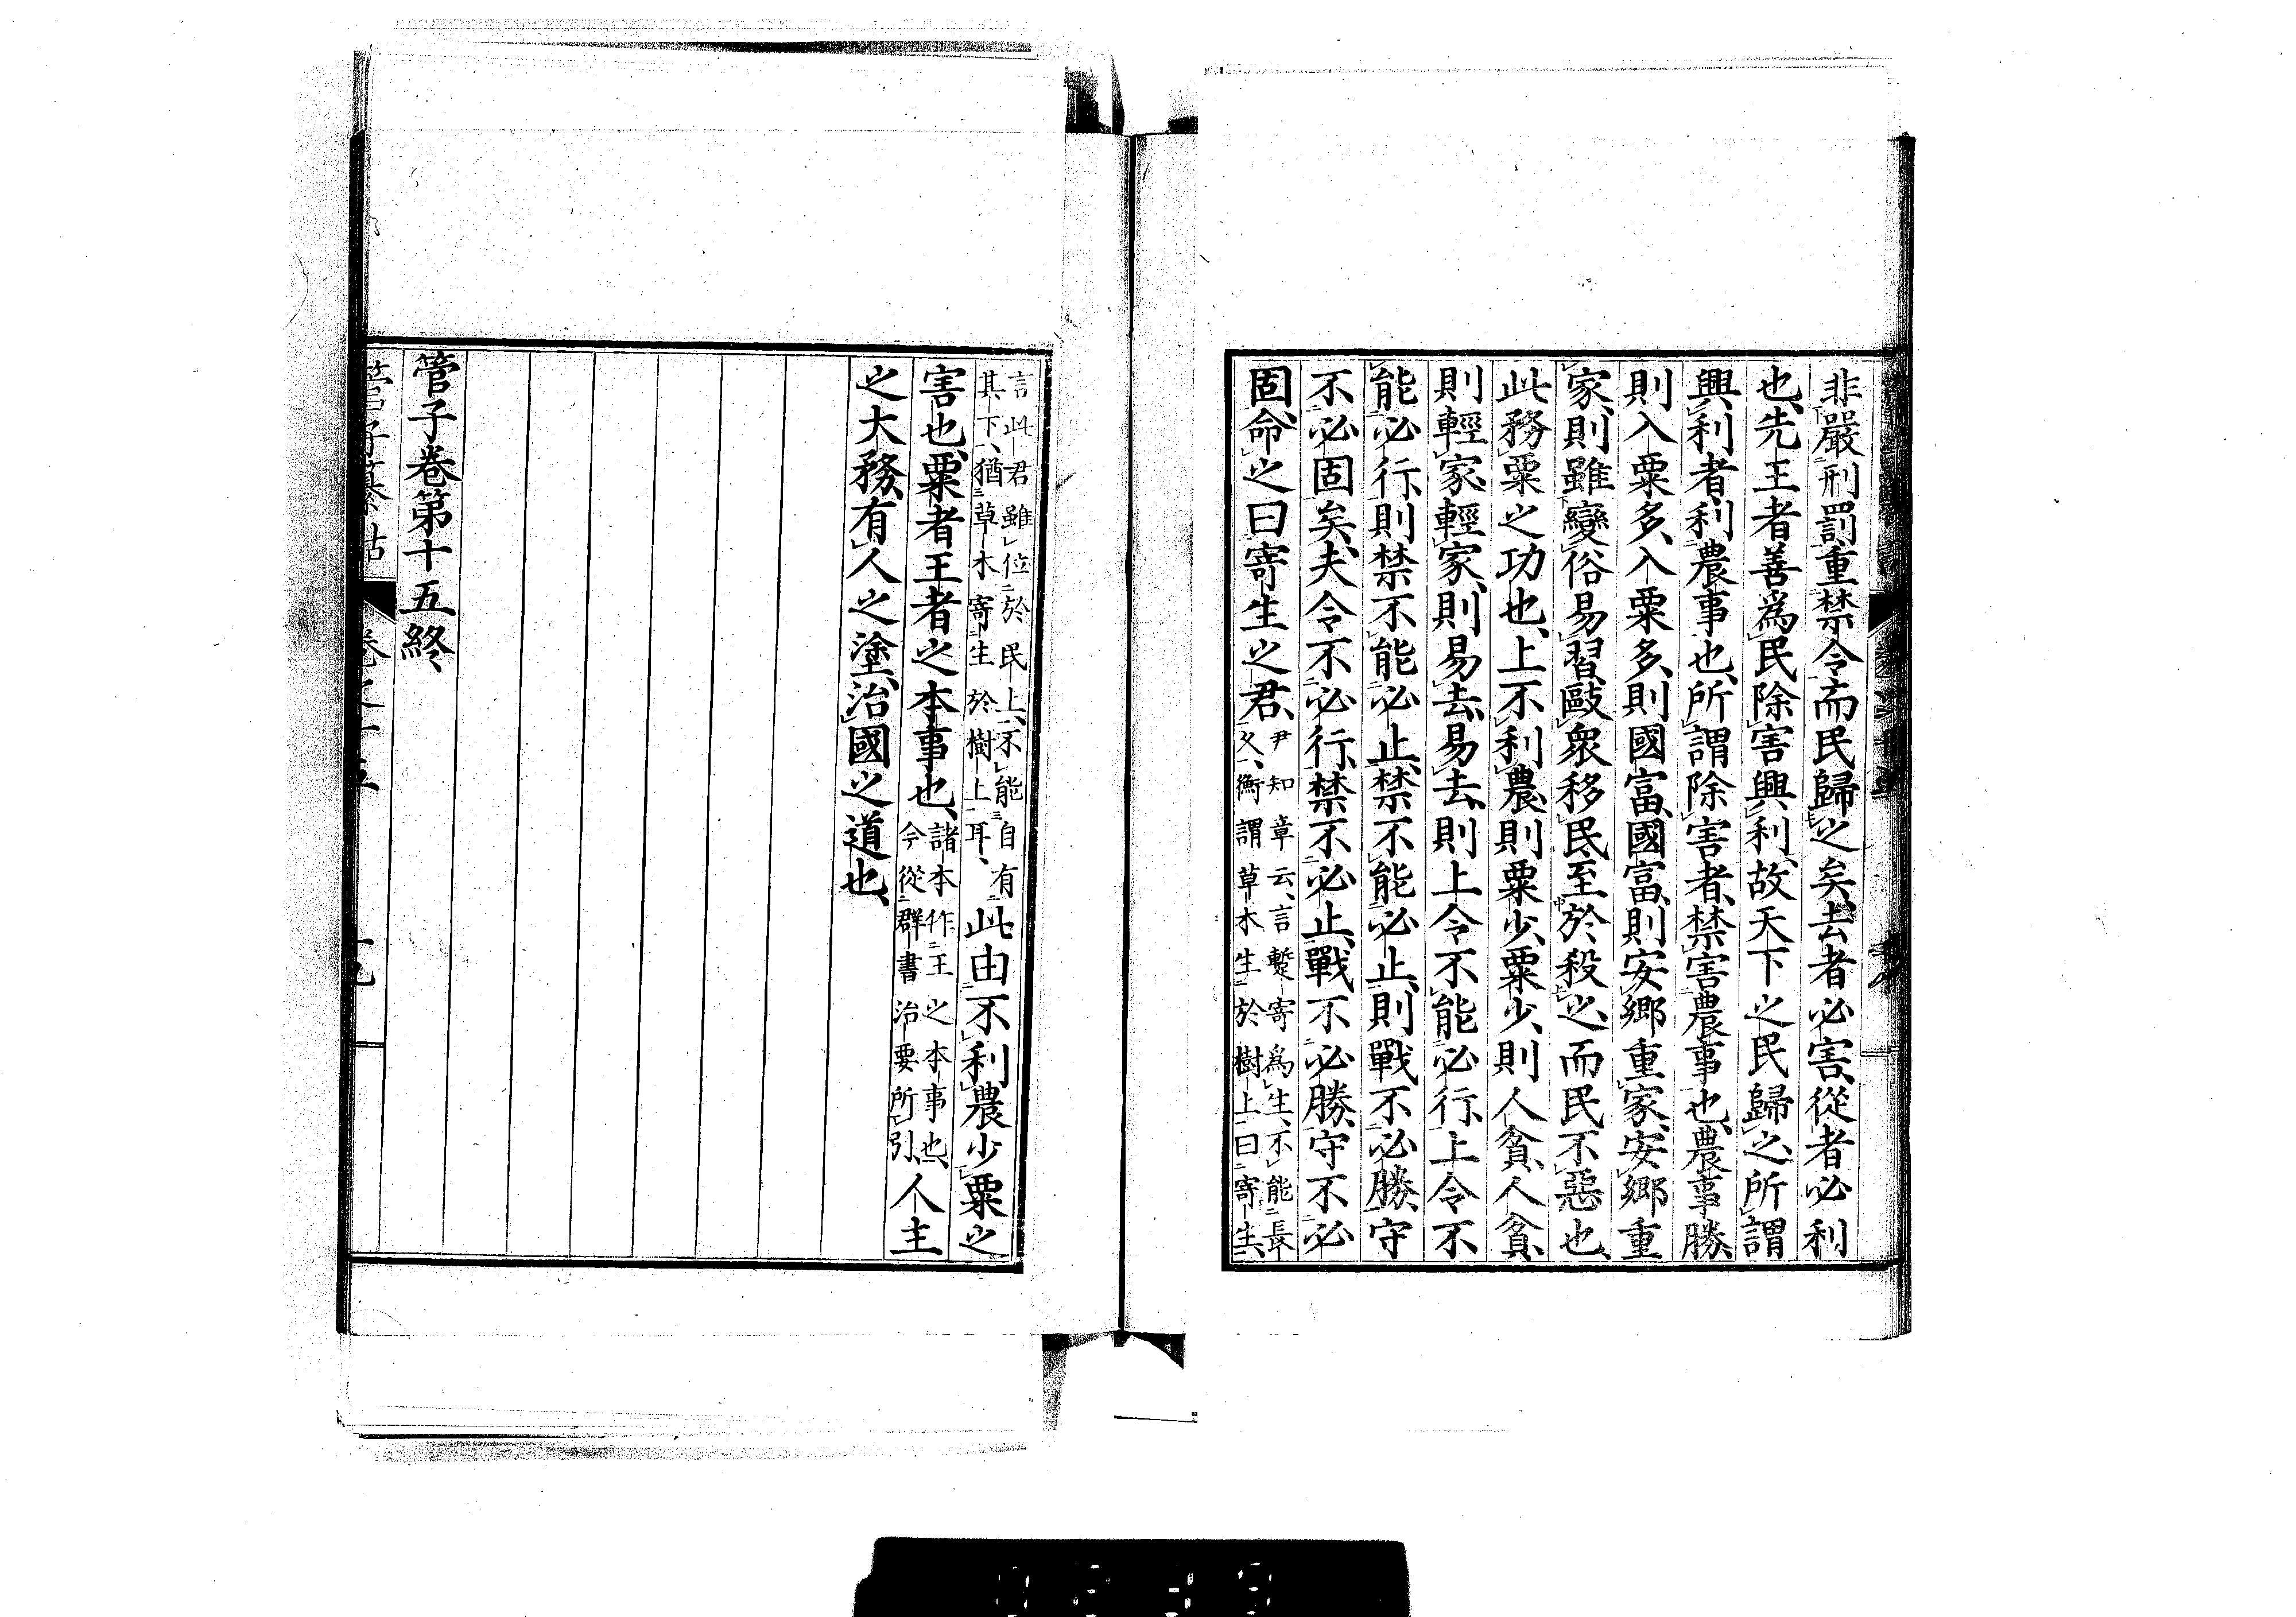 非嚴刑罰重禁令而民歸之矣、去者必害、從者必利
也、先王者善爲民除害興利、故天下之民歸之、所謂
興利者、利農事也、所謂除害者、禁害農事也、農事勝
則入粟多、入粟多、則國富、國富、則安鄉重家、安鄉重
家、則雖變俗易習敺衆移民、至於殺之、而民不惡也、
此務粟之功也、上不利農、則粟少、粟少、則人貧、人貧、
則輕家、輕家、則易去、易去、則上令不能必行、上令不
能必行、則禁不能必止、禁不能必止、則戰不必勝、守
不必固矣、夫令不必行、禁不必止、戰不必勝、守不必
固、命之曰寄生之君、
尹知章云、言蹔寄爲生、不能長
久、衡謂草木生於樹上曰寄生、
言此君雖位於民上、不能自有
其下、猶草木寄生於樹上耳、
此由不利農少粟之
害也、粟者王者之本事也、
諸本作王之本事也、
今從群書治要所引、
人主
之大務、有人之塗、治國之道也、
管子卷第十五終、
管子纂詁
卷之十五
十九